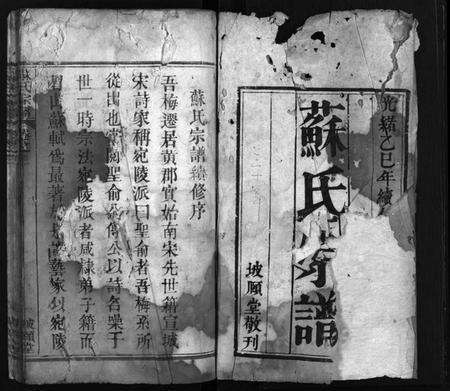 光緒乙巳年續
蘇氏宗譜
坡順堂敬刊
蘇氏宗譜續修序
吾梅遷居黄郡實始南宋先世籍宣城
宋詩家稱宛陵派曰聖俞者吾梅系所
從出也當聖俞公以詩名噪于
世一時宗法宛陵派者咸隸弟子籍而
眉山蘇軾爲最著 坡 藝 家以宛陵